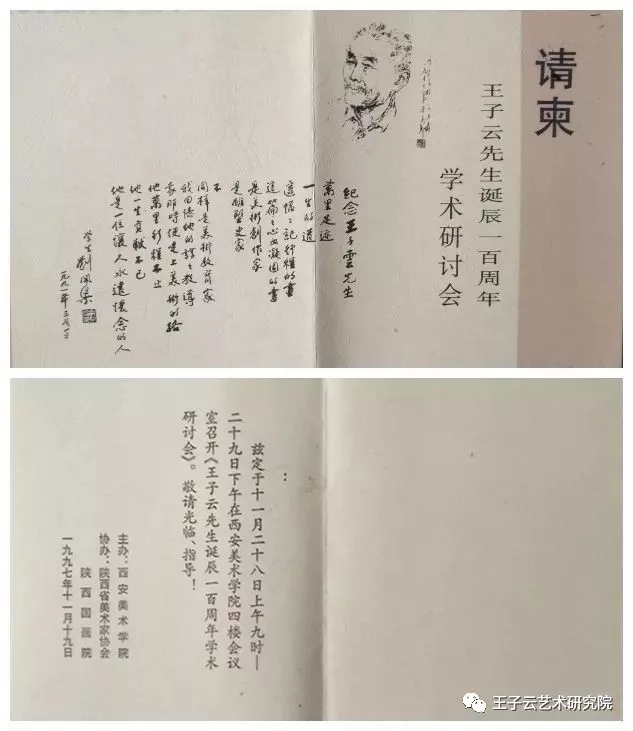 请柬
王子云先生诞辰一百周年
学术研讨会
纪念王子雲先生
萬里足迹
一生的道
這幅之記行程的畫
這篇之心血凝固的書
是美術創作家
是雕塑史家
不
同样是美術教育家
我回憶他的諄之教導
家那時便走上美術的路
他萬里行程不止
他一生貢献不已
他是一位讓人永遠懷念的人
学生劉風集
兹定于十一月二十八日上午九时—
二十九日下午在西安美术学院四楼会议
室召开《王子云先生诞辰一百周年学术
研讨会》。敬请光临、指导！
主办：西安美术学院
协办：陕西省美术家协会
陕西国画院
一九九七年十一月十九日
王子云艺术研究院